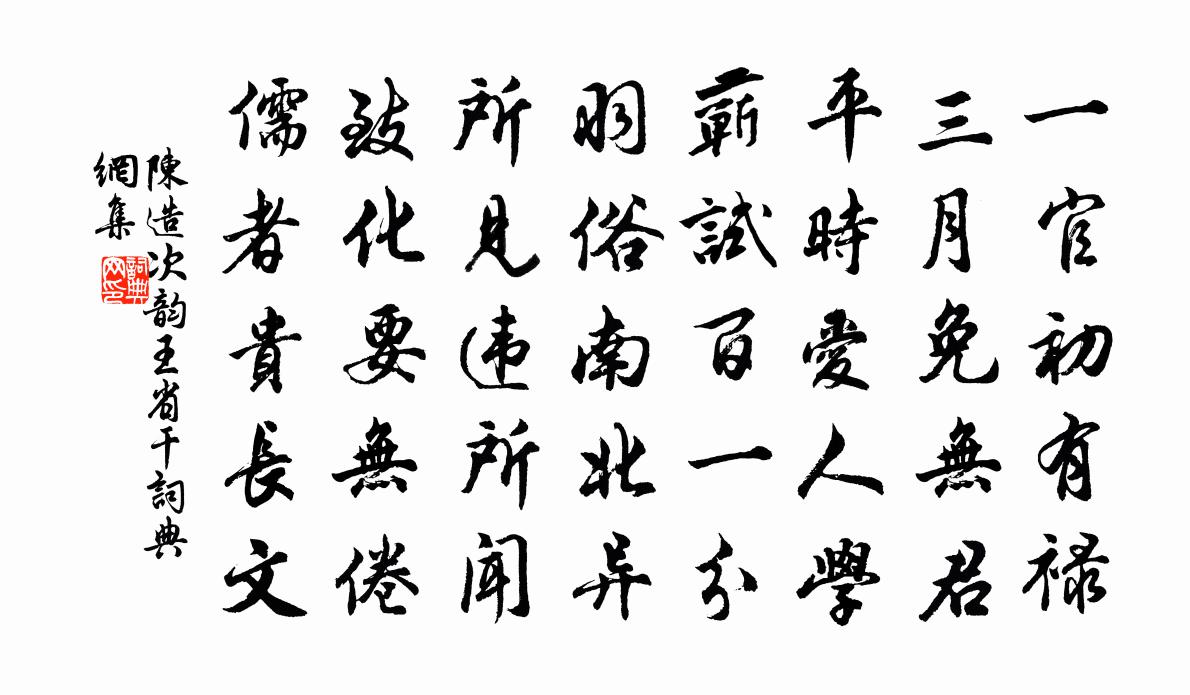 一官初有禄
三月免無君
平時愛人學
蘄試百一分
羽俗南北异
所見违所聞
致化要無倦
儒者貴長文
陳造次韵王省干詞典
網集
詞典
网印